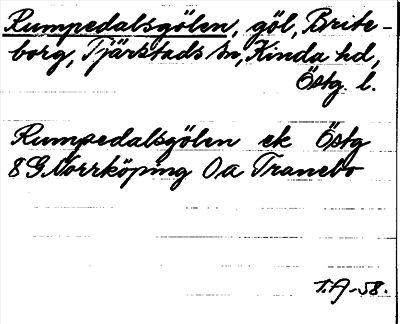 Rumpedalsgölen, göl, Brite-
borg, Tjärstads sn, Kinda hd,
Östg. l.
Rumpedalsgölen ek Östg
8 G Norrköping 0a Tranebo
T.A-58.